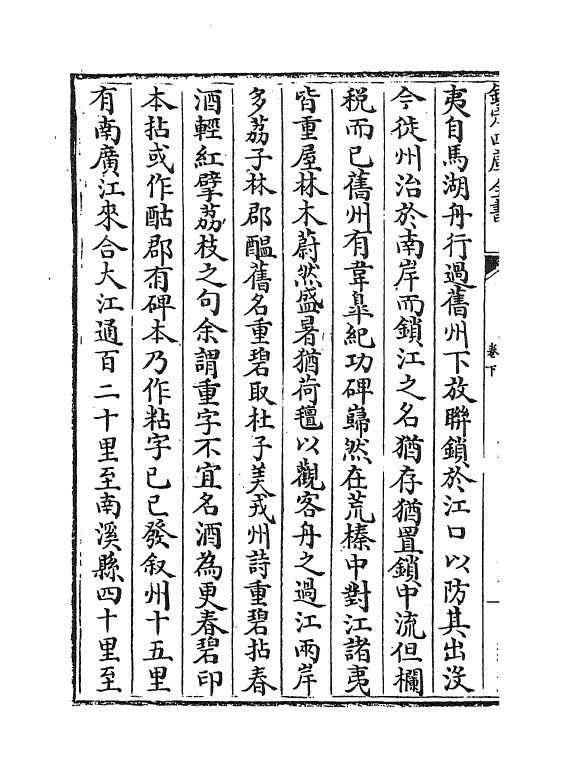 欽定四庫全書
卷下
夷自馬湖舟行過舊州下放聯鎖於江口以防其出沒
今徙州治於南岸而鎖江之名猶存猶置鎖中流但欄
税而已舊州有韋臯紀功碑巋然在荒榛中對江諸夷
皆重屋林木蔚然盛暑猶荷氊以觀客舟之過江兩岸
多荔子林郡醖舊名重碧取杜子美戎州詩重碧拈春
酒輕紅擘荔枝之句余謂重字不宜名酒為更春碧印
本拈或作酤郡有碑本乃作粘字已已發叙州十五里
有南廣江來合大江通百二十里至南溪縣四十里至